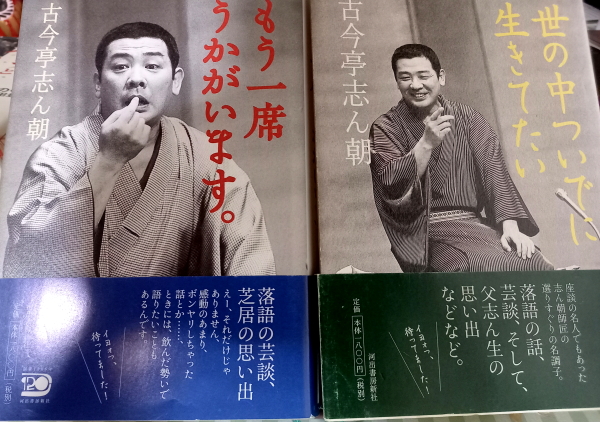 もう一席
うかがいます。
古今亭志ん朝
落語の芸談、
芝居の思い出
えー、それだけじゃ
ありません。
感動のあまり、
ボンヤリしちゃった
話とか……、
ときには、飲んだ勢いで
語りたいことも
あるんです。
イヨォっ、
待ってました!
120
河出書房新社
円(税別)
世の中ついでに
生きてたい
古今亭志ん朝
座談の名人でもあった
志ん朝師匠の
選りすぐりの名調子。
落語の話、
芸談、そして、
父志ん生の
思い出
などなど。
イヨォっ、
待ってました!
河出書房新社
定価 本体一八〇〇円(税別)